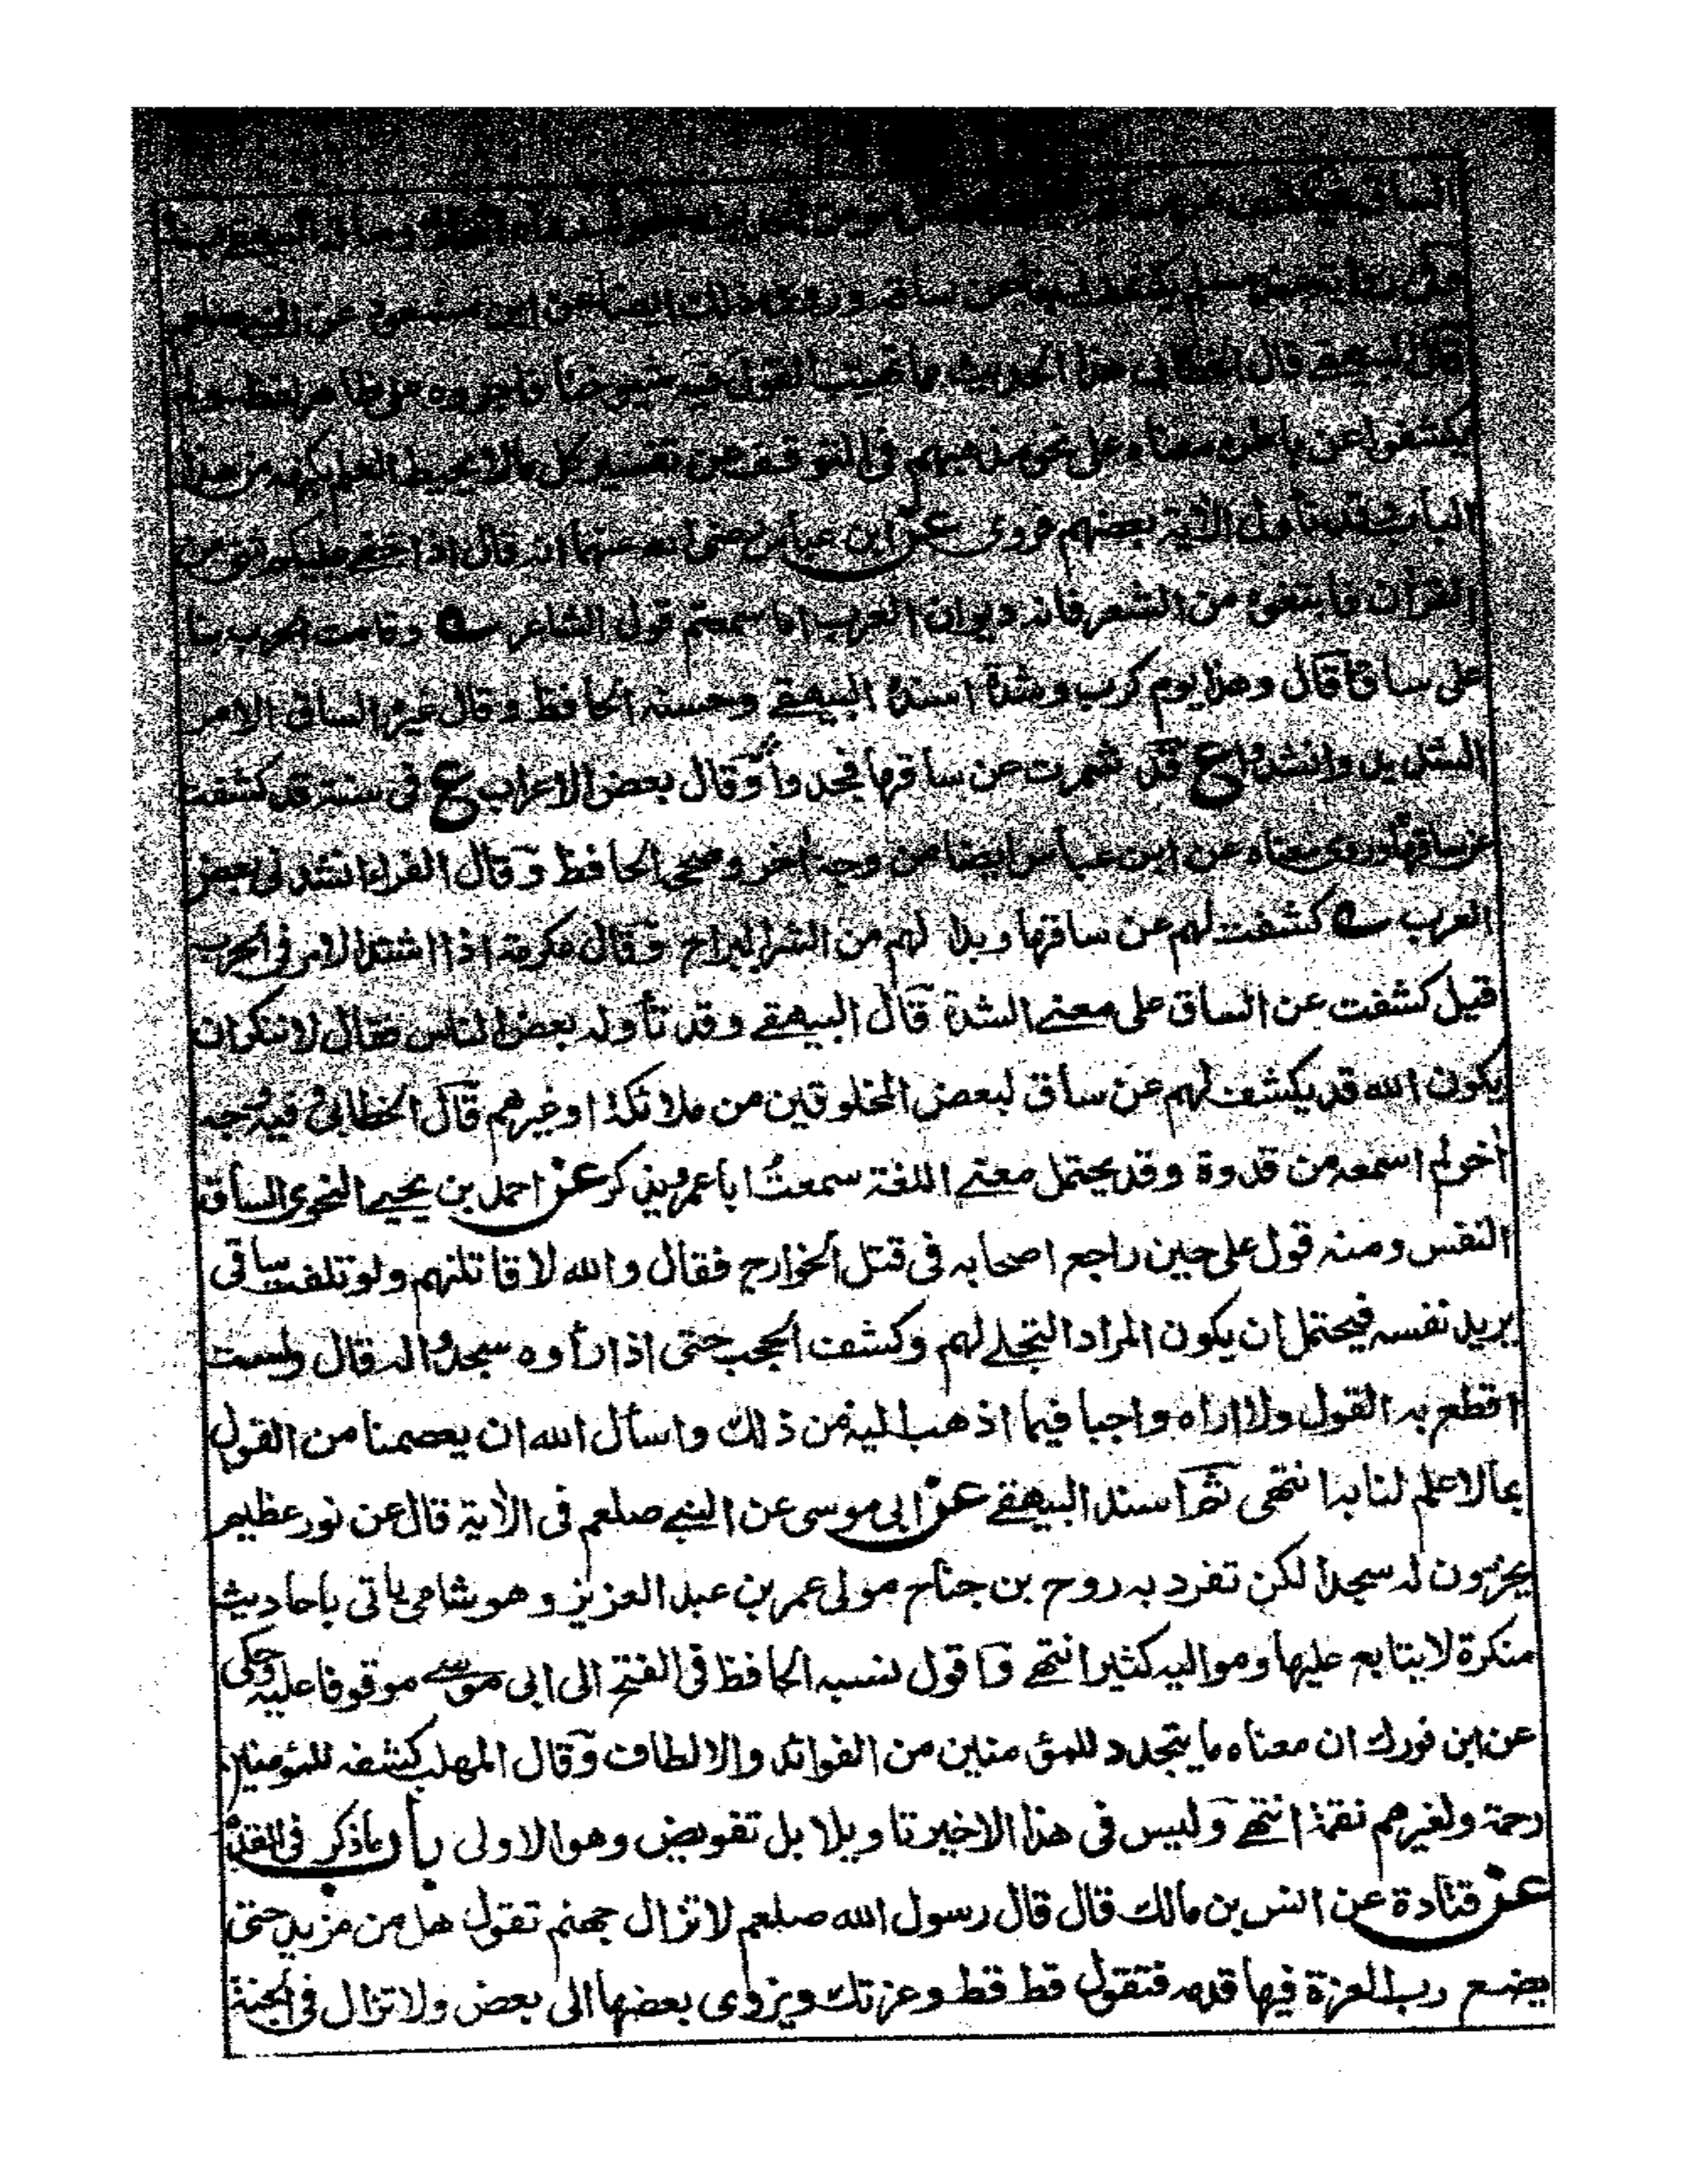 الساق فيكشف عن ساقه
وفي رواية مسلم يكشف لهم عن ساقه وروي ذلك ايضا عن ابن مسعود عن النبي صلعم
قال البيهقے قال الخطابي هذا الحديث ما تهيب القول فيه شيوخنا فاجروه على ظاهر لفظه ولم
يكشفوا عن باطن معناه على نحو مذهبهم فى التوقف عن تفسير كل مالا يحيط العلم بكنهه من هذا
الباب وقد تأول الآية بعضهم فروى عن ابن عباس رضى الله عنهما انه قال اذا خفے عليكم شئ من
القرآن فابتغوه من الشعر فانه ديوان العرب اما سمعتم قول الشاعر وقامت الحرب بنا
على ساق قال وهذا يوم كرب وشدة اسنده البيهقے وحسنه الحافظ وقال غيره الساق الامر
الشديد وانشدوا ع قد شمرت عن ساقها فجدوا وقال بعض الاعراب ع فى سنة قد كشفت
عن ساقها وروى معناه عن ابن عباس ايضا من وجه اخر وصححه الحافظ وقال الفراء انشدنى بعض
العرب كشفت لهم عن ساقها وبدا لهم من الشر البراح وقال عكرمة اذا اشتد الامر فى الحرب
قيل كشفت عن الساق على معنے الشدة قال البيهقے وقد تأوله بعض الناس فقال لا ننكر ان
يكون الله قد يكشف لهم عن ساق لبعض المخلوقين من ملائكة او غيرهم قال الخطابى فيه وجه
أخر لم اسمعه من قدوة وقد يحتمل معنے اللغة سمعتُ ابا عمر يذكر عن احمد بن يحيے النحوى الساق
النفس ومنه قول على حين راجع اصحابه فى قتل الخوارج فقال والله لاقاتلنهم ولو تلفت ساقى
يريد نفسه فيحتمل ان يكون المراد التجلے لهم وكشف الحجب حتى اذا رأوه سجدوا له قال ولست
اقطع به القول ولا اراه واجبا فيما اذهب اليه من ذلك واسأل الله ان يعصمنا من القول
بما لا علم لنا به انتهى ثم اسند البيهقے عن ابى موسى عن النبے صلعم فى الآية قال عن نور عظيم
يخرون له سجدا لكن تفرد به روح بن جناح مولى عمر بن عبد العزيز وهو شامى ياتى باحاديث
منكرة لا يتابع عليها ومواليه كثير انتهے واقول نسبه الحافظ فى الفتح الى ابى موسے موقوفا عليه وحكى
عن ابن فورك ان معناه ما يتجدد للمؤمنين من الفوائد والالطاف وقال المهلب كشفه للمؤمنين
رحمة ولغيرهم نقمة انتهے وليس فى هذا الاخير تاويلا بل تفويض وهو الاولى باب ما ذكر فى القدم
عن قتادة عن انس بن مالك قال قال رسول الله صلعم لا تزال جهنم تقول هل من مزيد حتى
يضع رب العزة فيها قدمه فتقول قط قط وعزتك ويزوى بعضها الى بعض ولا تزال فى الجنة